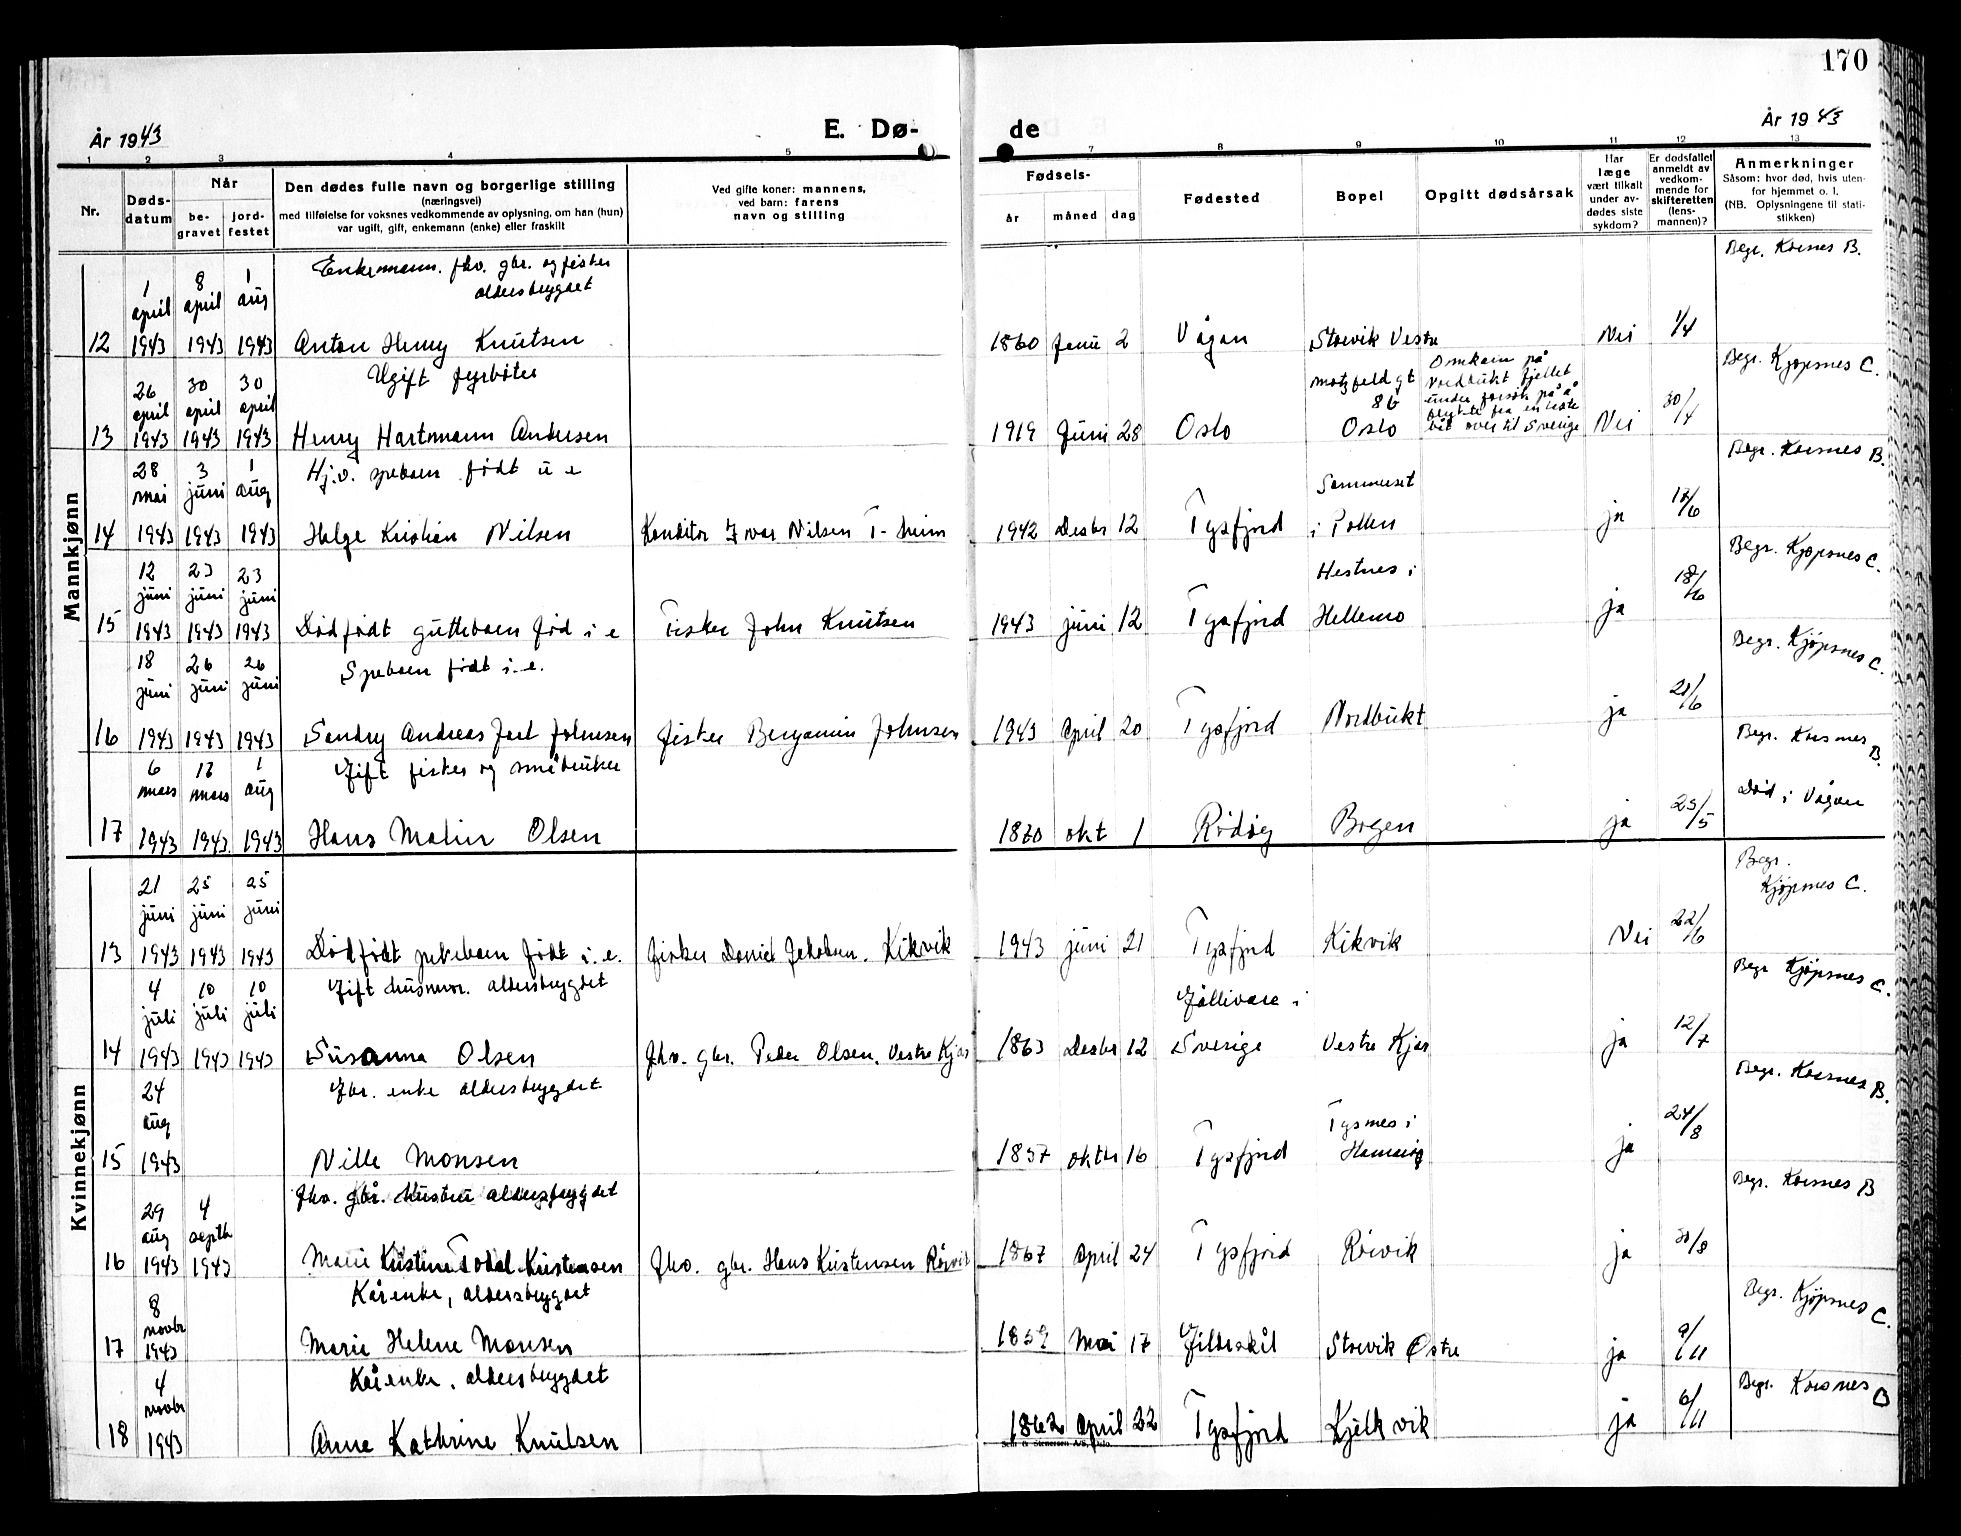 170
År 1943
E. Dø-
de
År 1943
1 2 3 4 5 7 8 9 10 11 12 13
Nr.
Døds-
datum
Når
be-
gravet
jord-
festet
Den dødes fulle navn og borgerlige stilling
(næringsvei)
med tilføielse for voksnes vedkommende av oplysning, om han (hun)
var ugift, gift, enkemann (enke) eller fraskilt
Ved gifte koner: mannens,
ved barn: farens
navn og stilling
Fødsels-
år måned dag
Fødested
Bopel
Opgitt dødsårsak
Har
læge
vært tilkalt
under av-
dødes siste
sykdom?
Er dødsfallet
anmeldt av
vedkom-
mende for
skifteretten
(lens-
mannen)?
Anmerkninger
Såsom: hvor død, hvis uten-
for hjemmet o. l.
(NB. Oplysningene til stati-
stikken)
Mannkjønn
Enkemann. fhv. gbr. og fisker
aldersbrygdet
12 1 april 1943 8 april 1943 1 aug 1943 Anton Henry Knutsen 1860 Janu 2 Vågan Storvik Vestre Nei 1/4 Begr. Korsnes B.
Ugift fyrbøter
13 26 april 1943 30 april 1943 30 april 1943 Henry Hartmann Andersen 1919 Juni 28 Oslo Motzfeld gt 8b Oslo Omkom på Nordbukt fjellet under forsøk på å flykte fra en liste båt over til Sverige Nei 30/4 Begr. Kjøpsnes C.
Hj.v. speborn født u e
14 28 mai 1943 3 juni 1943 1 aug 1943 Helge Kristian Nilsen Konditor Ivar Nilsen T-heim 1942 Desbr 12 Tysfjord Sommerset i Pollen ja 17/6 Begr. Korsnes B.
15 12 juni 1943 23 juni 1943 23 juni 1943 Dødfødt guttebarn fød i e Fisker John Knutsen 1943 juni 12 Tysfjord Hestnes i Hellemo ja 18/6 Begr. Kjøpsnes C.
Spebarn født i.e.
16 18 juni 1943 26 juni 1943 26 juni 1943 Sendry Andreas Jarl Johnsen fisker Benjamin Johnsen 1943 April 20 Tysfjord Nordbukt ja 21/6 Begr. Kjøpsnes C.
Gift fisker og småbruker
17 6 mars 1943 17 mars 1943 1 aug 1943 Hans Malin Olsen 1870 okt 1 Rødøy Bogen ja 25/5 Begr. Korsnes B. Død i Vågan
Kvinnekjønn
13 21 juni 1943 25 juni 1943 25 juni 1943 Dødfødt pikebarn født i.e. fisker Daniel Jakobsen. Kikvik 1943 juni 21 Tysfjord Kikvik Nei 22/6 Begr. Kjøpsnes C.
Gift husmor. aldersbrygdet
14 4 juli 1943 10 juli 1943 10 juli 1943 Susanna Olsen fhv. gbr. Peder Olsen, Vestre Kjær 1863 Desbr 12 Gällivare i Sverige Vestre Kjær ja 12/7 Begr Kjøpsnes C.
Gbr. enke aldersbrygdet
15 24 aug 1943 Nille Monsen 1857 oktbr 16 Tysfjord Tysnes i Hamarøy ja 24/8 Begr. Korsnes B.
fhv. gbr. hustru aldersbrygdet
16 29 aug 1943 4 septbr 1943 Marie Kristine Todal Kristensen fhv. gbr. Hans Kristensen Rørvik 1867 April 24 Tysfjord Rørvik ja 30/8 Begr. Korsnes B
Kårenke, aldersbrygdet
17 8 novbr 1943 Marie Helene Monsen 1859 Mai 17 Gildeskål Storvik Østre ja 9/11 Begr. Kjøpsnes C.
Kårenke. aldersbrygdet
18 4 novbr 1943 Anna Kathrine Knutsen 1862 April 22 Tysfjord Kjelkvik ja 6/11 Begr. Korsnes B
Sem & Stenersen A/S, Oslo.